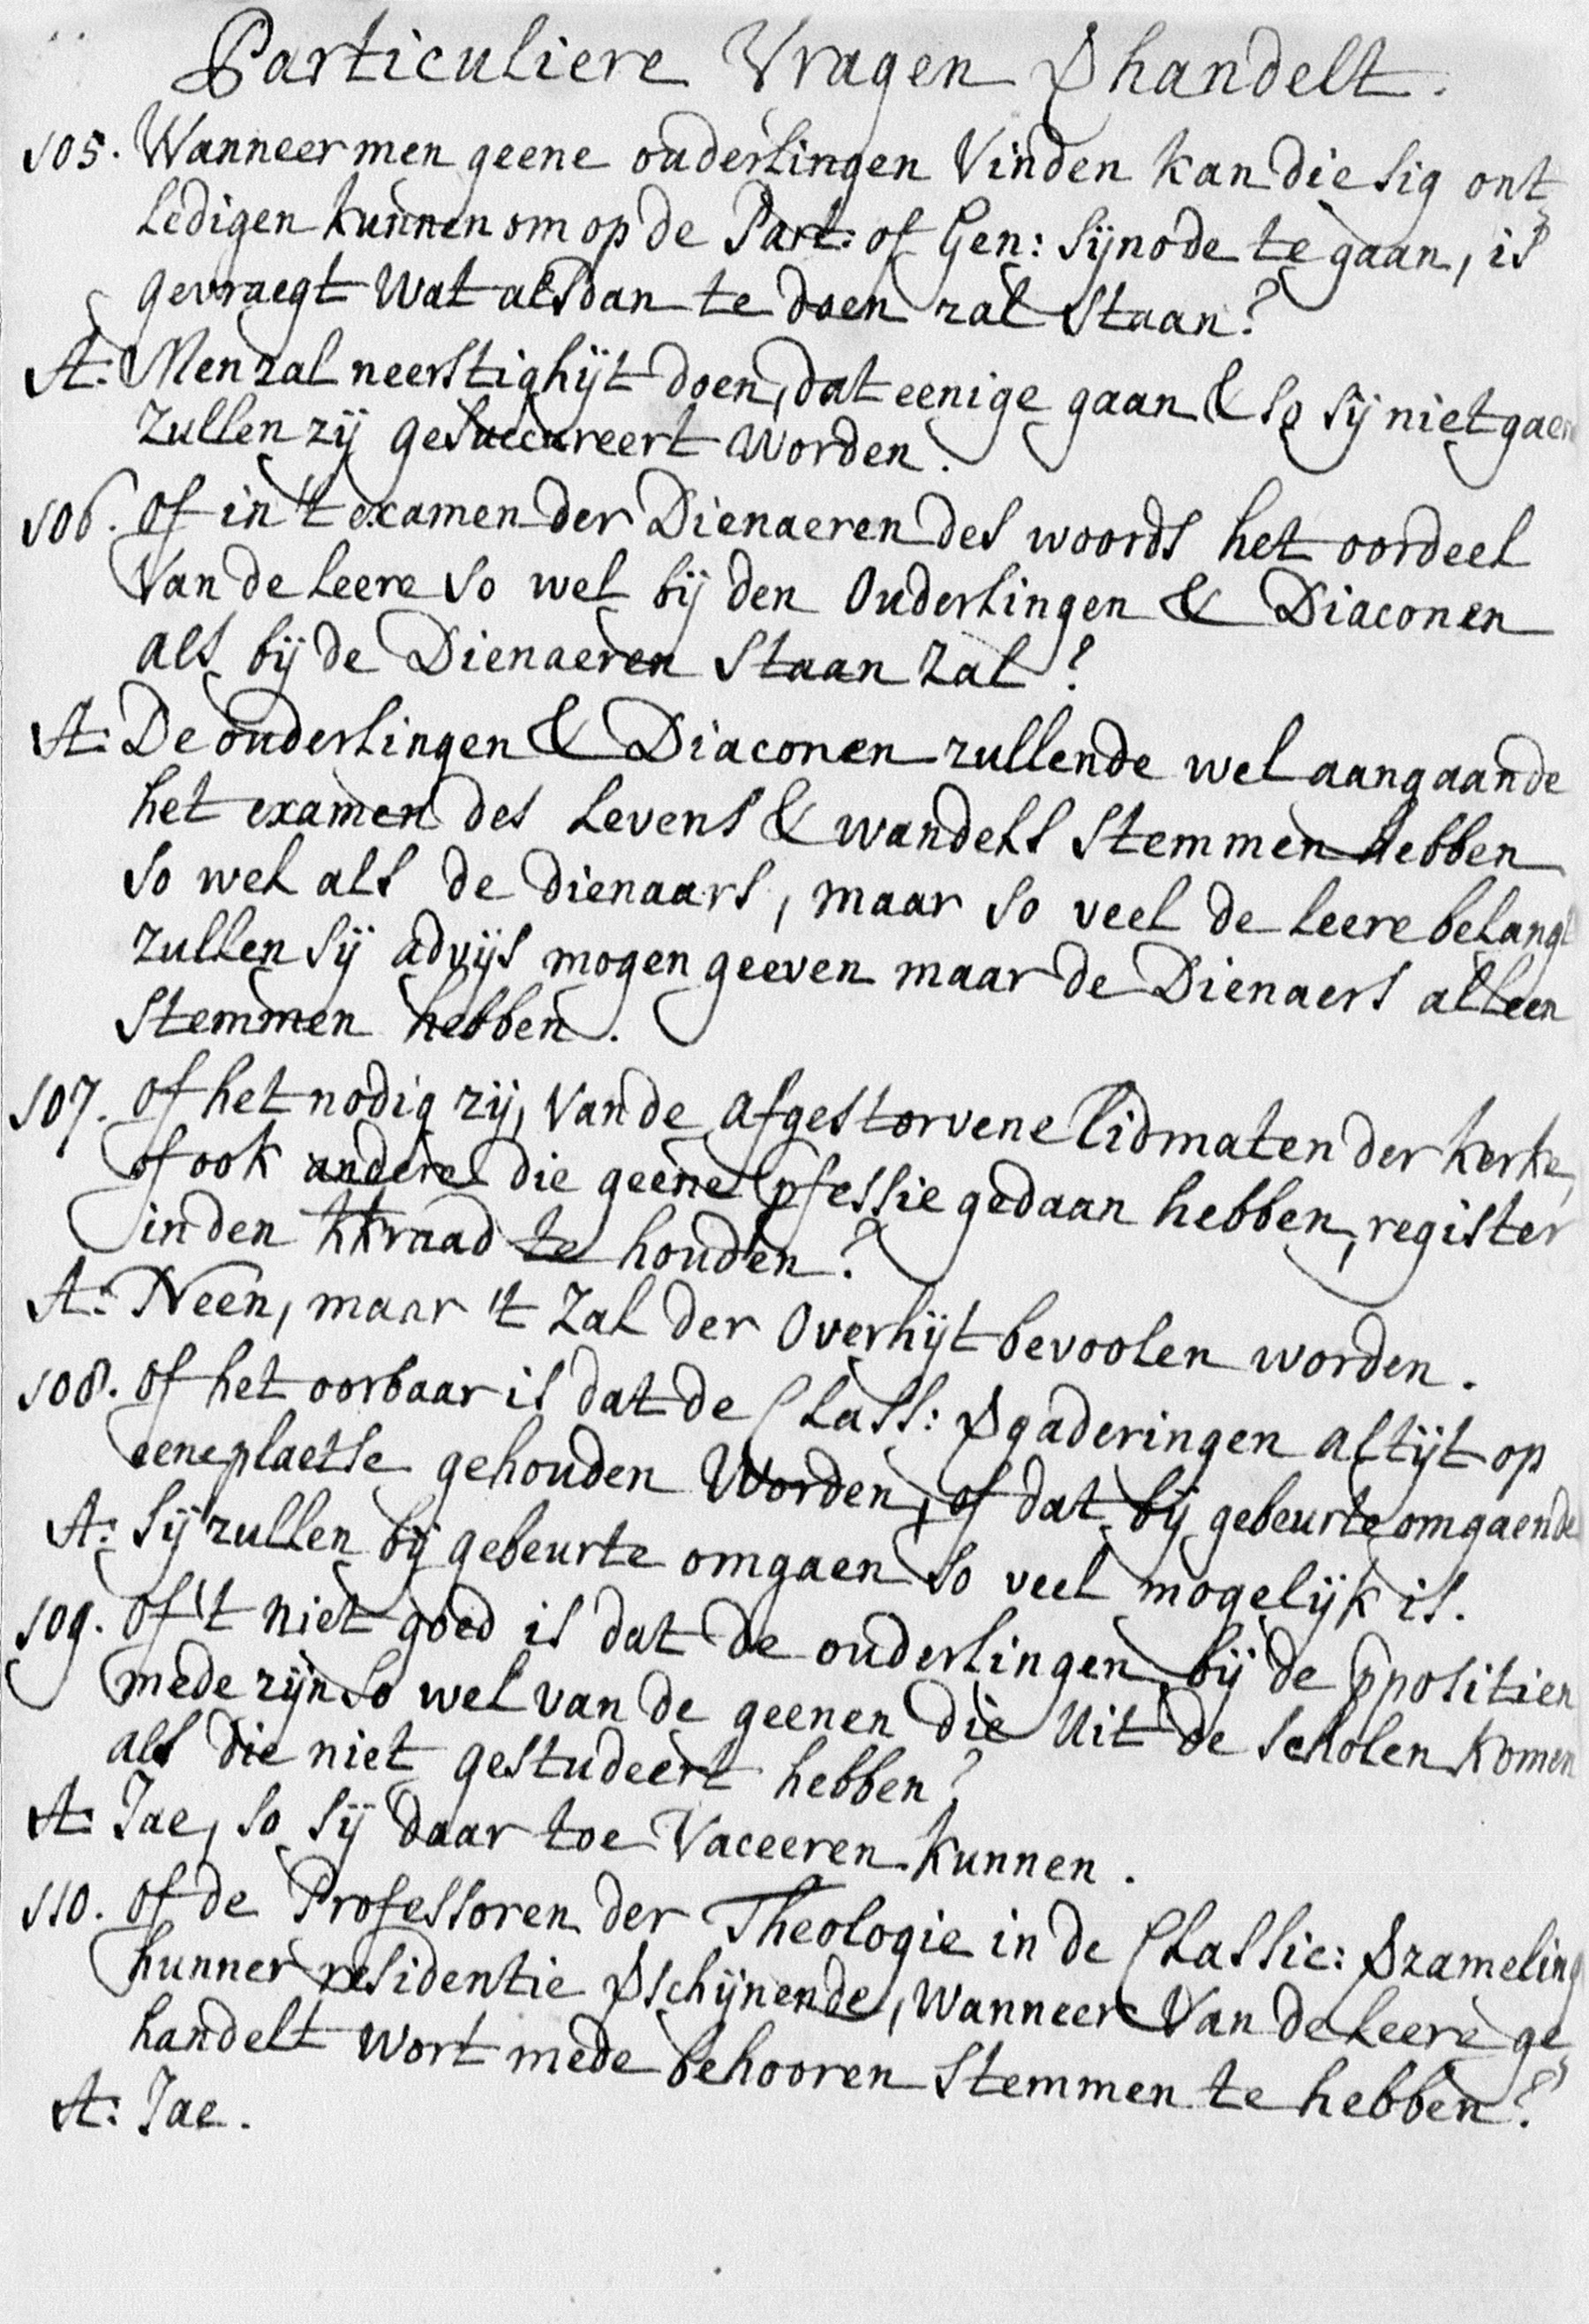 Particuliere Vragen Vhandelt.
105. Wanneer men geene ouderlingen Vinden kan die sig ont
ledigen kunnen om op de Part: of Gen: Sijnode te gaan, is
gevraegt Wat alsdan te doen zal staan?
A: Men zal neerstighijt doen, dat eenige gaan & so sij niet gaen
zullen zij gesuccureert Worden.
106. of in 't examen der Dienaeren des woords het oordeel
Van de leere so wel bij den Ouderlingen & Diaconen
als bij de Dienaeren staan zal?
A: De ouderlingen & Diaconen zullende wel aangaande
het examen des Levens & wandels stemmen hebben
so wel als de dienaars, maar so veel de leere belangt
zullen sij advijs mogen geeven maar de Dienaers alleen
stemmen hebben.
107. of het nodig zij, Van de afgestorvene Lidmaten der kerke,
of ook andere die geene pfessie gedaan hebben, register
in den kkraad te houden?
A: Neen, maar 't zal der Overhijt bevoolen worden.
108. of het oorbaar is dat de Class: Vgaderingen altijt op
eene plaetse gehouden Worden, of dat bij gebeurte omgaende
A: Sij zullen bij gebeurte omgaen so veel mogelijk is.
109. of 't niet goed is dat de ouderlingen bij de ppositien
mede zijn so wel van de geenen die Uit de scholen komen
als die niet gestudeert hebben?
A: Jae, so sij daar toe Vaceeren kunnen.
110. of de Professoren der Theologie in de Classic: Vzameling
hunner residentie Vschijnende, Wanneer Van de leere ge
handelt wort mede behooren stemmen te hebben?
A: Jae.